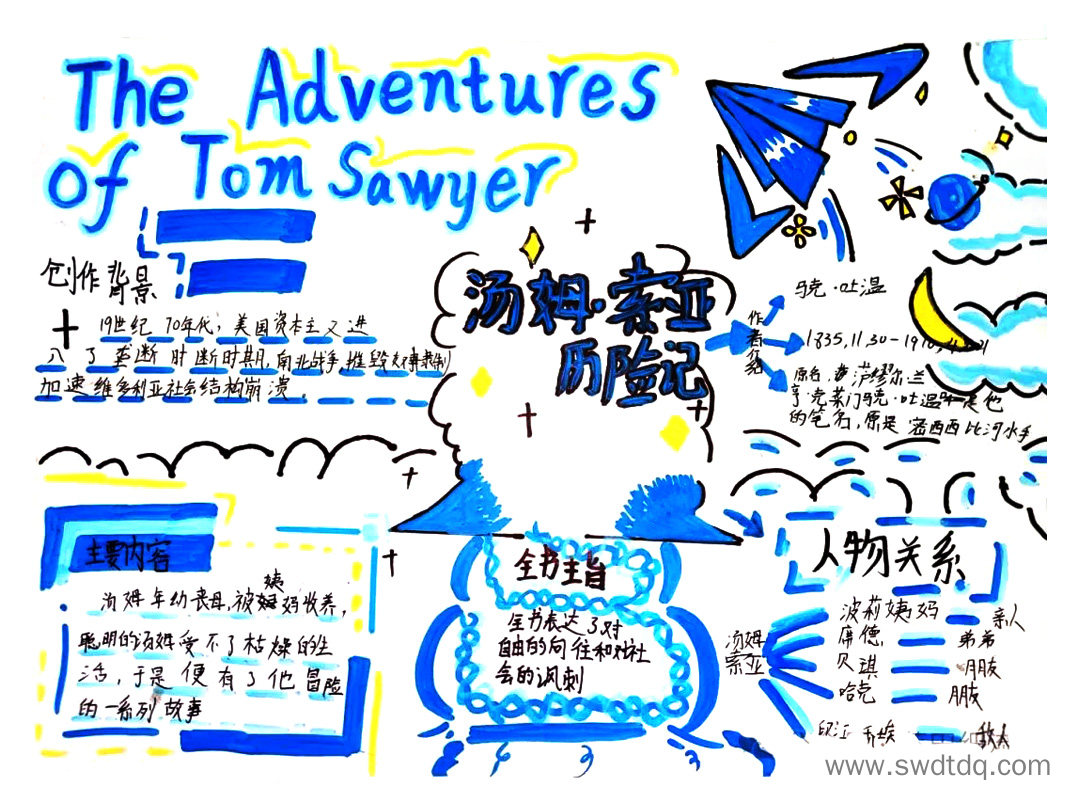 The Adventures
of Tom Sawyer
创作背景
19世纪 70年代，美国资本主义进
入了垄断时断时期，南北战争，摧毁
加速维多利亚社会结构崩溃。
汤姆·索亚
历险记
作者名
马克·吐温
1835,11,30-1910,4
原名，萨缪尔·兰
亨·克莱门 马克·吐温 是他
的笔名，原是密西西比河水手
主要内容
汤姆年幼丧母，被姨妈收养，
聪明的汤姆受不了枯燥的生
活，于是便有了他冒险
的一系列故事
全书主旨
全书表达了对
自由的向往和对社
会的讽刺
人物关系
汤姆
索亚
波莉姨妈 亲人
席德 弟弟
贝琪 朋友
哈克 朋友
敌人
www.swdtdq.com